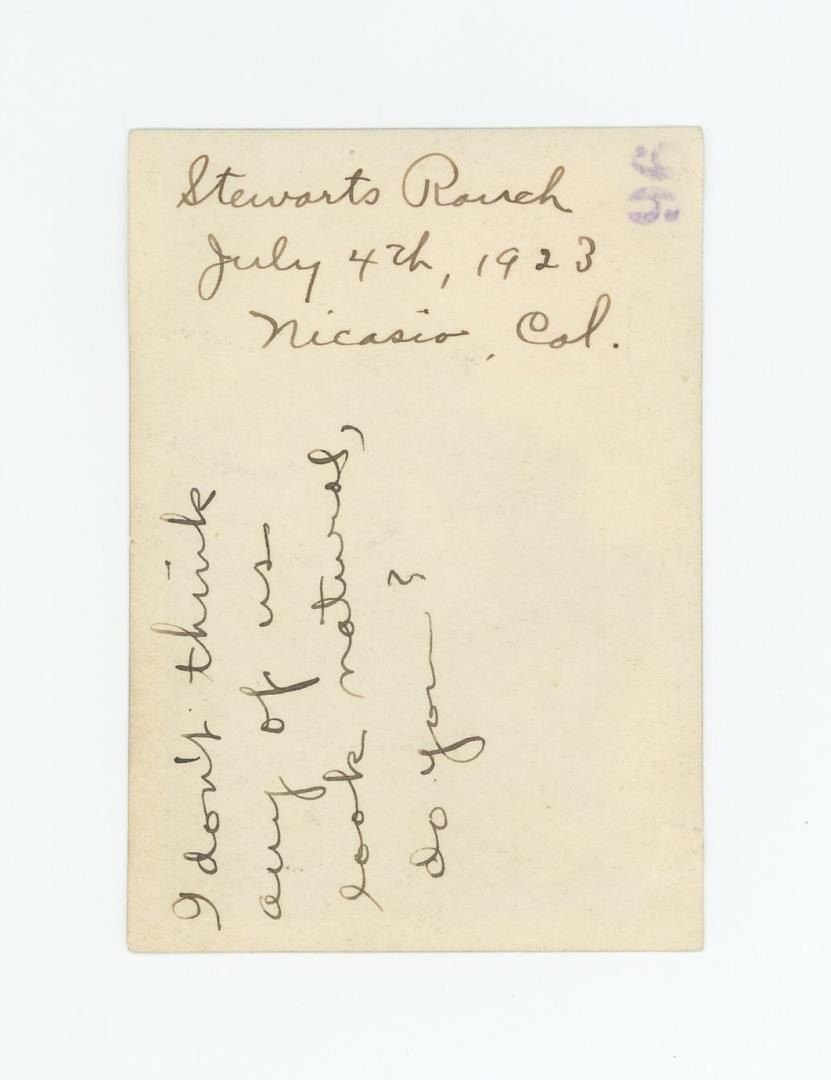 Stewarts Ranch
July 4th, 1923
Nicasio, Cal.
I don't think
any of us
look natural,
do you?